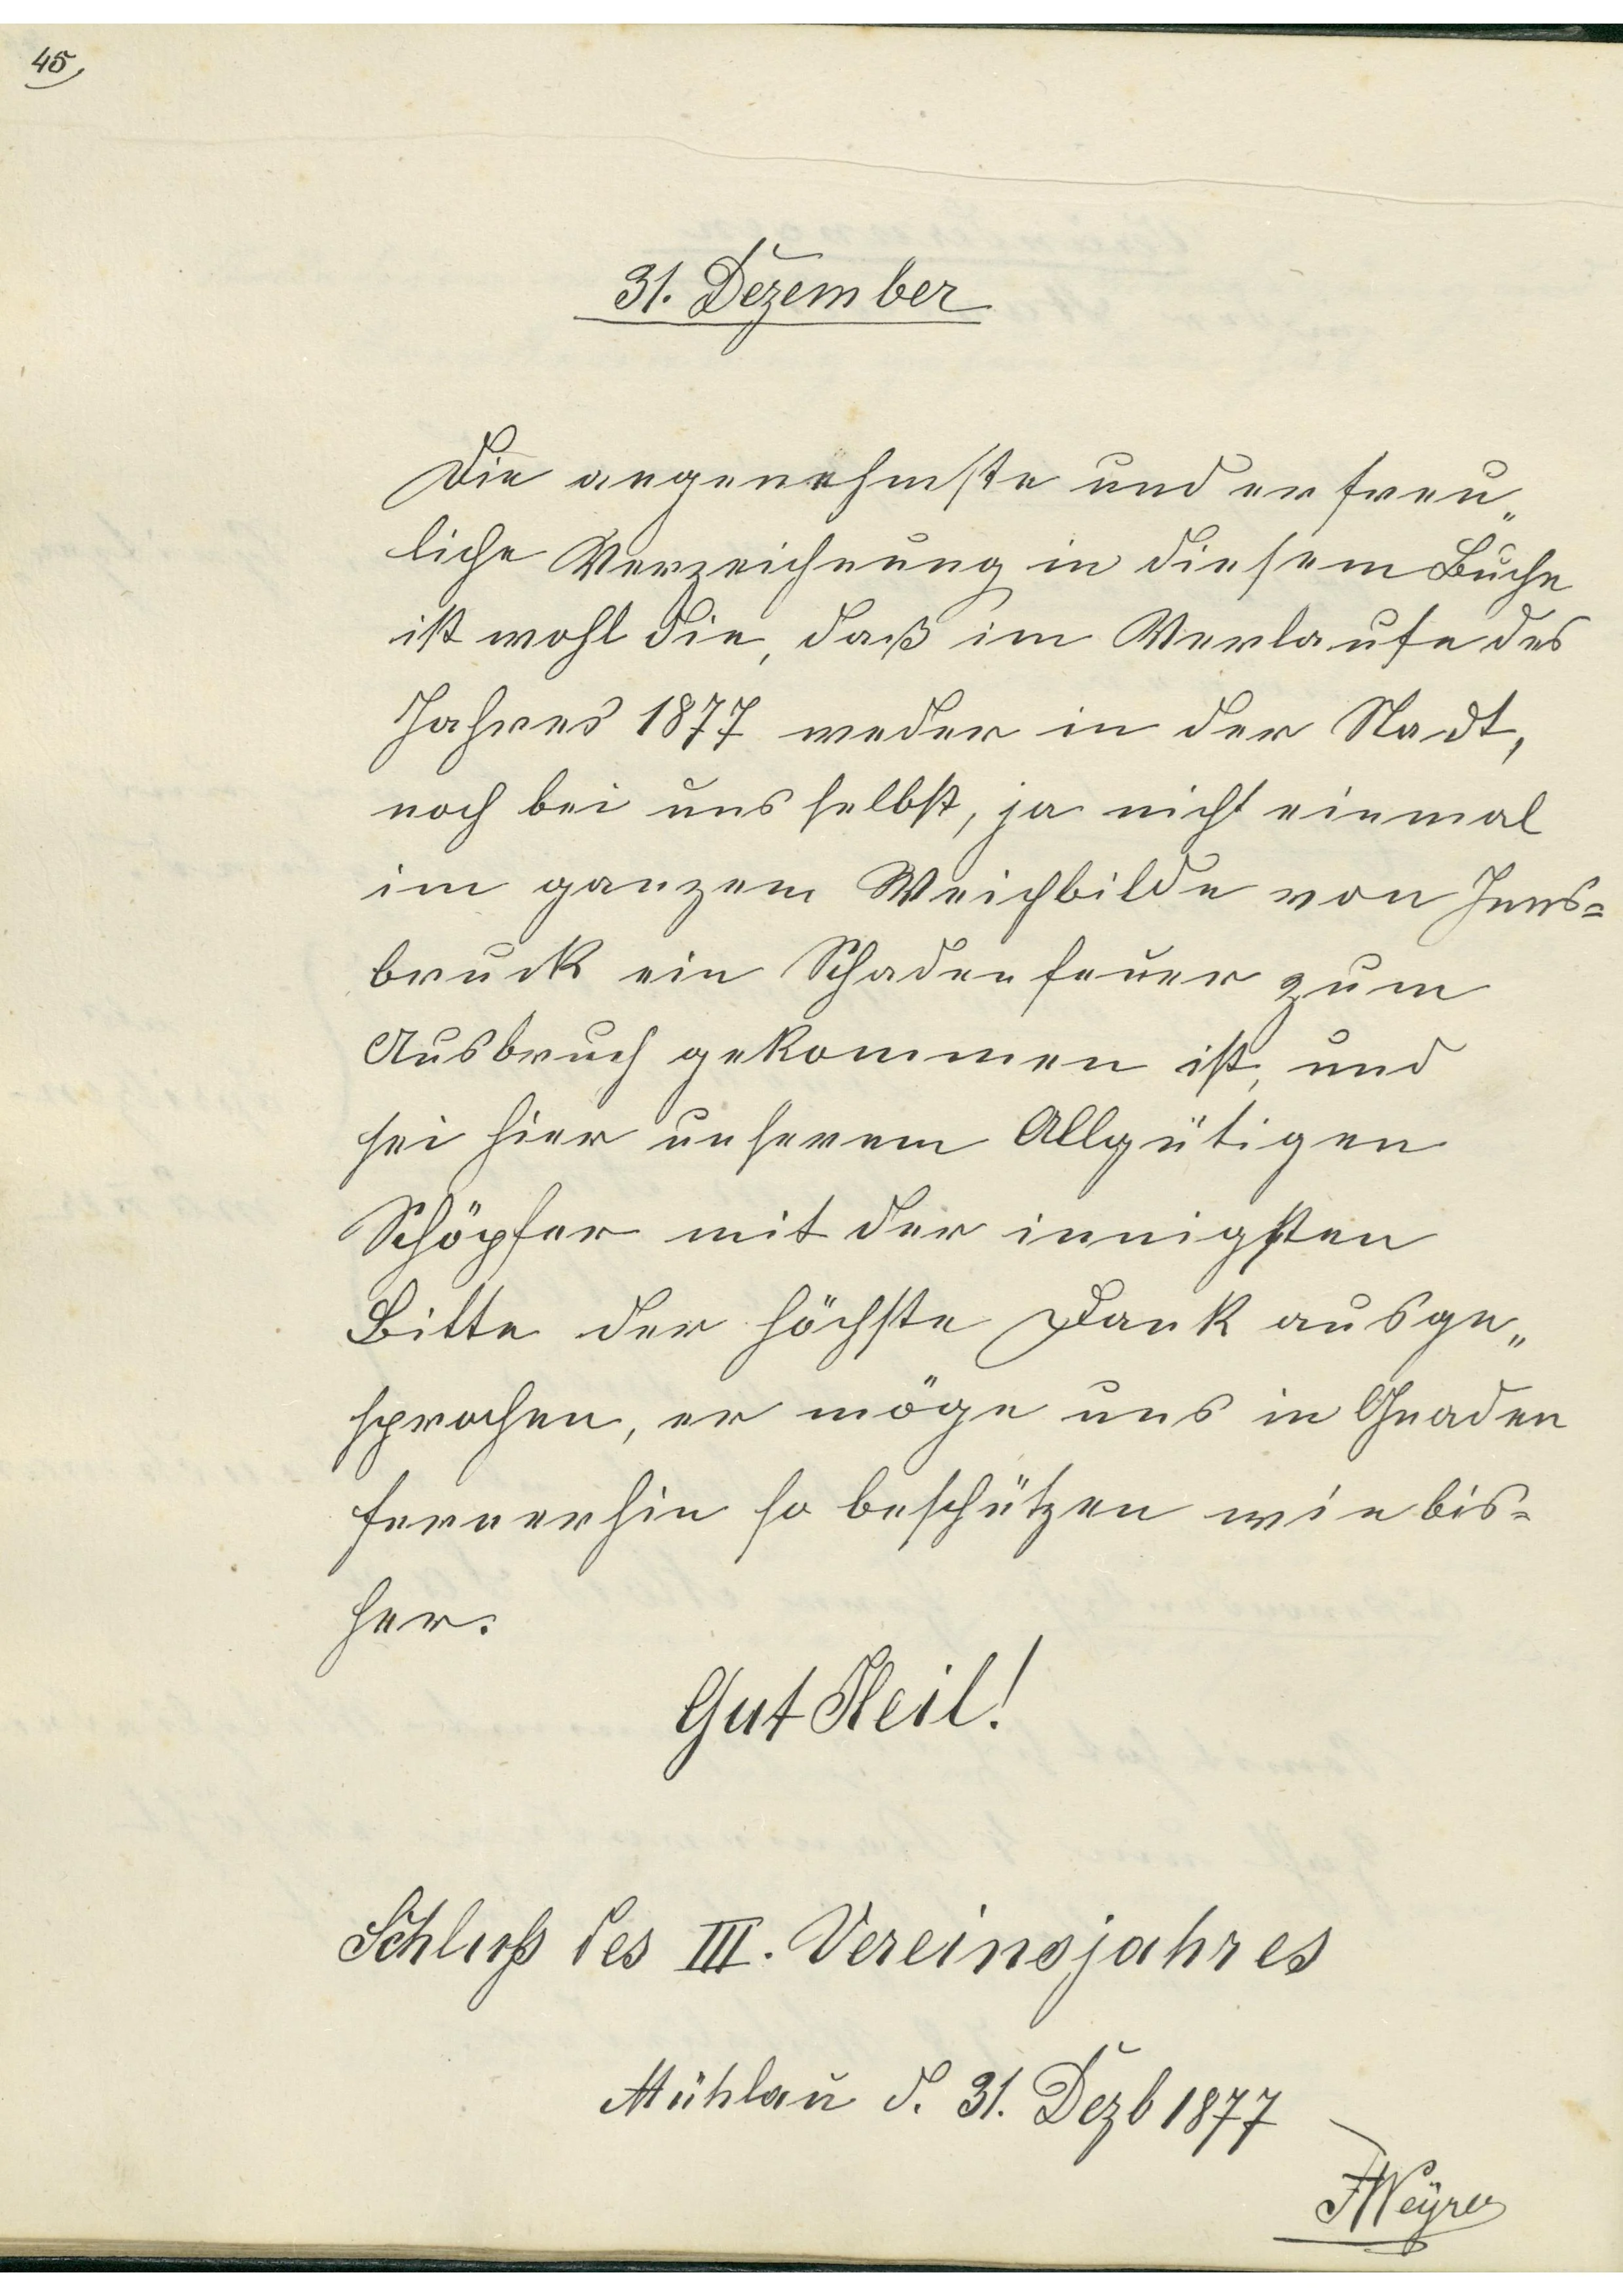 45,
31. Dezember
Die angenehmste und erfreu„
liche Verzeichnung in diesem Buche
ist wohl die, daß im Verlaufe des
Jahres 1877 weder in der Stadt,
noch bei uns selbst, ja nicht einmal
im ganzem Weichbilde von Inns=
bruck ein Schadenfeuer zum
Ausbruch gekommen ist, und
sei hier unserem Allgütigen
Schöpfer mit der innigsten
Bitte der höchste Dank ausge„
sprochen, er möge uns in Gnaden
fernerhin so beschützen wie bis=
her.
Gut Heil!
Schluß des III. Vereinsjahres
Mühlau d. 31. Dezb 1877
FWeÿrer